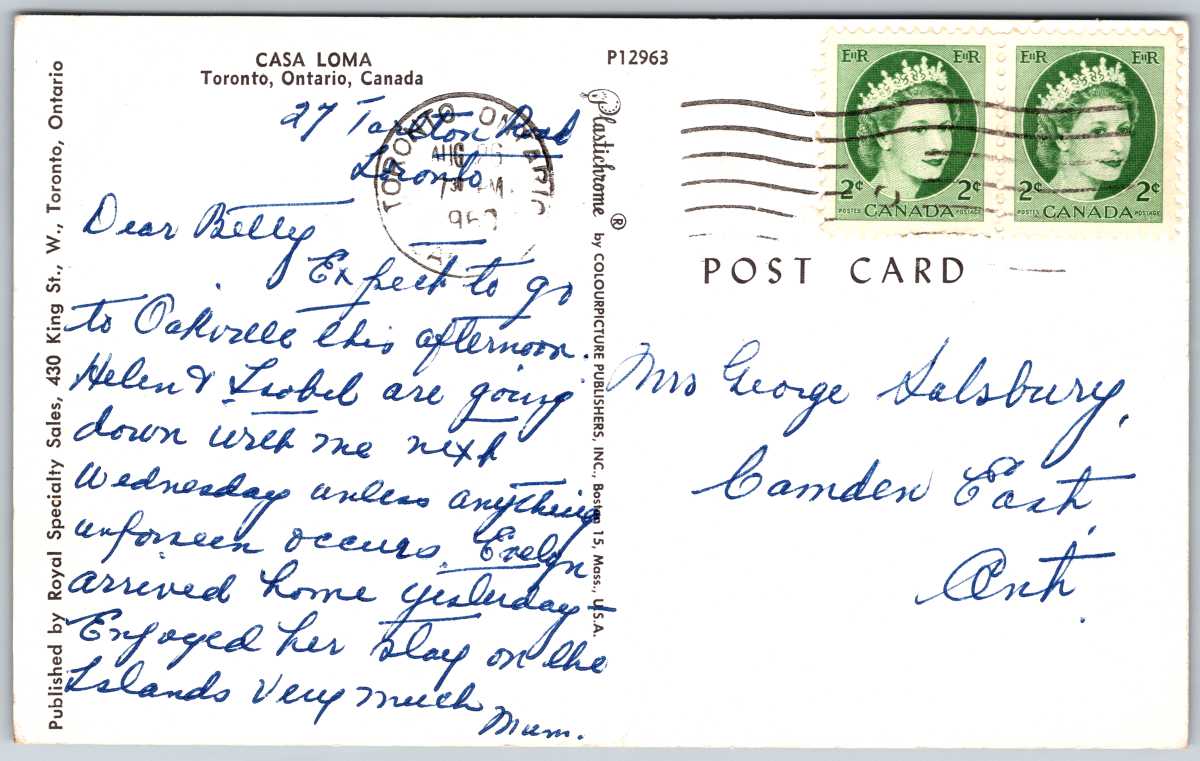 CASA LOMA
Toronto, Ontario, Canada
P12963
27 Road
Toronto
Dear Betty
Expect to go
to Oakville this afternoon.
Helen & Isobel are going
down with me next
Wednesday unless anything
unforseen occurs. Evelyn
arrived home yesterday
Enjoyed her stay on the
Islands very much
Mum.
Published by Royal Specialty Sales, 430 King St., W., Toronto, Ontario
Plastichrome ® by COLOURPICTURE PUBLISHERS, INC., Boston 15, Mass., U.S.A.
TORONTO ONTARIO
AUG
PM
EIIR EIIR
2¢ 2¢
POSTES CANADA POSTAGE
EIIR EIIR
2¢ 2¢
POSTES CANADA POSTAGE
POST CARD
Mrs George Salsbury,
Camden East,
Ont.